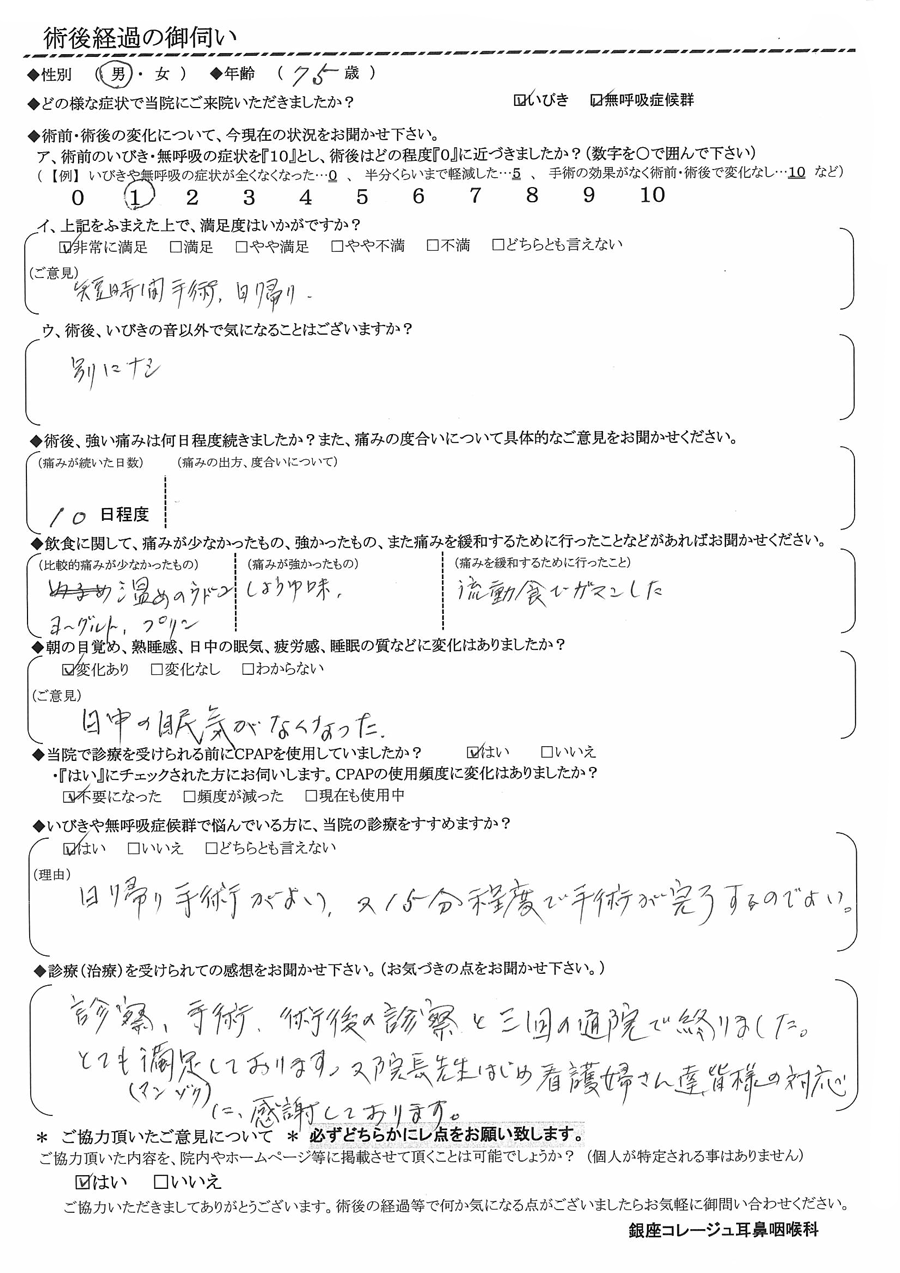 術後経過の御伺い
◆性別 （ 男 ・ 女 ） ◆年齢 （ 75 歳 ）
◆どの様な症状で当院にご来院いただきましたか？ ☑いびき ☑無呼吸症候群
◆術前・術後の変化について、今現在の状況をお聞かせ下さい。
ア、術前のいびき・無呼吸の症状を『10』とし、術後はどの程度『0』に近づきましたか？（数字を○で囲んで下さい）
（【例】 いびきや無呼吸の症状が全くなくなった…0 、 半分くらいまで軽減した…5 、 手術の効果がなく術前・術後で変化なし…10 など）
0 1 2 3 4 5 6 7 8 9 10
イ、上記をふまえた上で、満足度はいかがですか？
☑非常に満足 □満足 □やや満足 □やや不満 □不満 □どちらとも言えない
（ご意見）
短時間手術，日帰り．
ウ、術後、いびきの音以外で気になることはございますか？
別にナシ
◆術後、強い痛みは何日程度続きましたか？また、痛みの度合いについて具体的なご意見をお聞かせください。
（痛みが続いた日数） （痛みの出方、度合いについて）
10 日程度
◆飲食に関して、痛みが少なかったもの、強かったもの、また痛みを緩和するために行ったことなどがあればお聞かせください。
（比較的痛みが少なかったもの） （痛みが強かったもの） （痛みを緩和するために行ったこと）
温めのウドン しょうゆ味． 流動食でガマンした
ヨーグルト，プリン
◆朝の目覚め、熟睡感、日中の眠気、疲労感、睡眠の質などに変化はありましたか？
☑変化あり □変化なし □わからない
（ご意見）
日中の眠気がなくなった．
◆当院で診療を受けられる前にCPAPを使用していましたか？ ☑はい □いいえ
・『はい』にチェックされた方にお伺いします。CPAPの使用頻度に変化はありましたか？
☑不要になった □頻度が減った □現在も使用中
◆いびきや無呼吸症候群で悩んでいる方に、当院の診療をすすめますか？
☑はい □いいえ □どちらとも言えない
（理由）
日帰り手術がよい，又15分程度で手術が完了するのでよい。
◆診療（治療）を受けられての感想をお聞かせ下さい。（お気づきの点をお聞かせ下さい。）
診察、手術、術后後の診察と三回の通院で終りました。
とても満足しております，又院長先生はじめ看護婦さん達皆様の対応
（マンゾク）
に、感謝しております。
＊ ご協力頂いたご意見について ＊ 必ずどちらかにレ点をお願い致します。
ご協力頂いた内容を、院内やホームページ等に掲載させて頂くことは可能でしょうか？ （個人が特定される事はありません）
☑はい □いいえ
ご協力いただきましてありがとうございます。術後の経過等で何か気になる点がございましたらお気軽に御問い合わせください。
銀座コレージュ耳鼻咽喉科